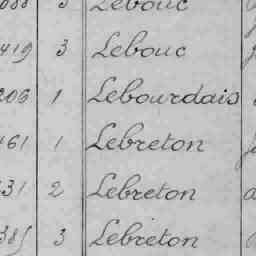 3 Lebouc
419 3 Lebouc
206 1 Lebourdais
461 1 Lebreton
431 2 Lebreton
385 3 Lebreton